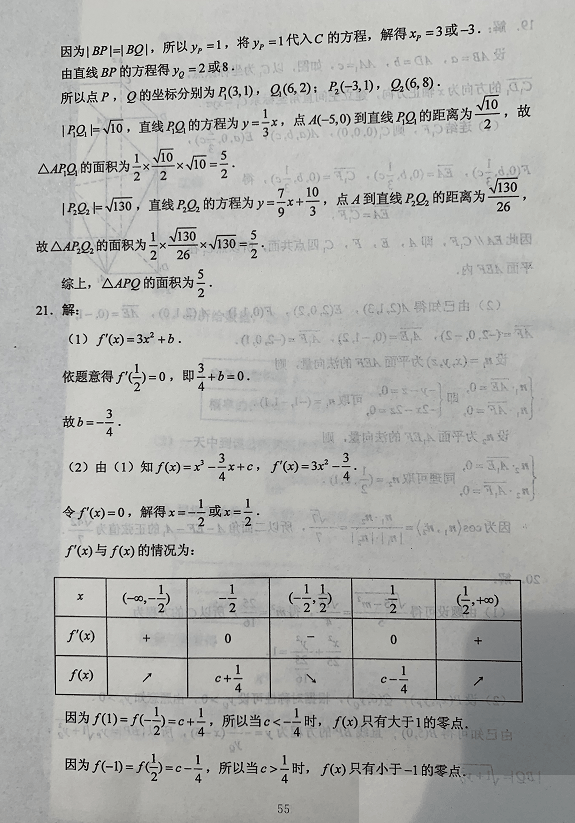 因为|BP|=|BQ|，所以y_P=1，将y_P=1代入C的方程，解得x_P=3或-3．
由直线BP的方程得y_Q=2或8．
所以点P，Q的坐标分别为P₁(3,1)，Q₁(6,2)；P₂(-3,1)，Q₂(6,8)．
|P₁Q₁|=√10，直线P₁Q₁的方程为y=1/3x，点A(-5,0)到直线P₁Q₁的距离为√10/2，故
△AP₁Q₁的面积为1/2×√10/2×√10=5/2．
|P₂Q₂|=√130，直线P₂Q₂的方程为y=7/9x+10/3，点A到直线P₂Q₂的距离为√130/26，
故△AP₂Q₂的面积为1/2×√130/26×√130=5/2．
综上，△APQ的面积为5/2．
21．解：
（1）f′(x)=3x²+b．
依题意得f′(1/2)=0，即3/4+b=0．
故b=-3/4．
（2）由（1）知f(x)=x³-3/4x+c，f′(x)=3x²-3/4．
令f′(x)=0，解得x=-1/2或x=1/2．
f′(x)与f(x)的情况为：
x (-∞,-1/2) -1/2 (-1/2,1/2) 1/2 (1/2,+∞)
f′(x) + 0 - 0 +
f(x) ↗ c+1/4 ↘ c-1/4 ↗
因为f(1)=f(-1/2)=c+1/4，所以当c<-1/4时，f(x)只有大于1的零点．
因为f(-1)=f(1/2)=c-1/4，所以当c>1/4时，f(x)只有小于-1的零点．
55